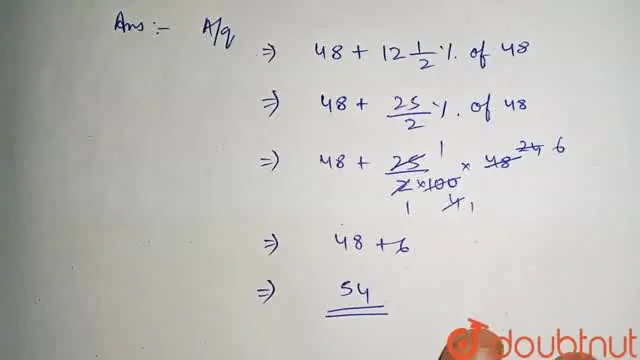 Ans :- A/q
⇒ 48 + 12 1/2 % of 48
⇒ 48 + 25/2 % of 48
⇒ 48 + 25/(2×100) × 48 1 24 6 1 4 1
⇒ 48 + 6
⇒ 54
doubtnut